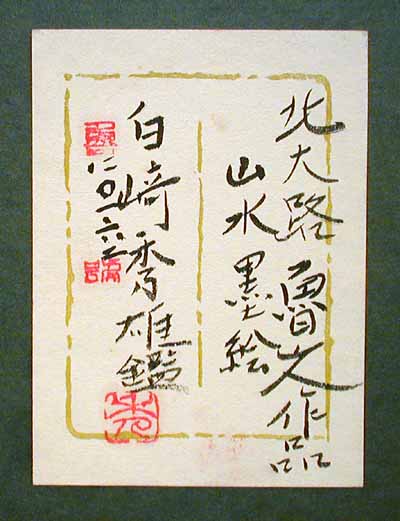 北大路魯山人作品
山水墨絵
白崎秀雄鑑